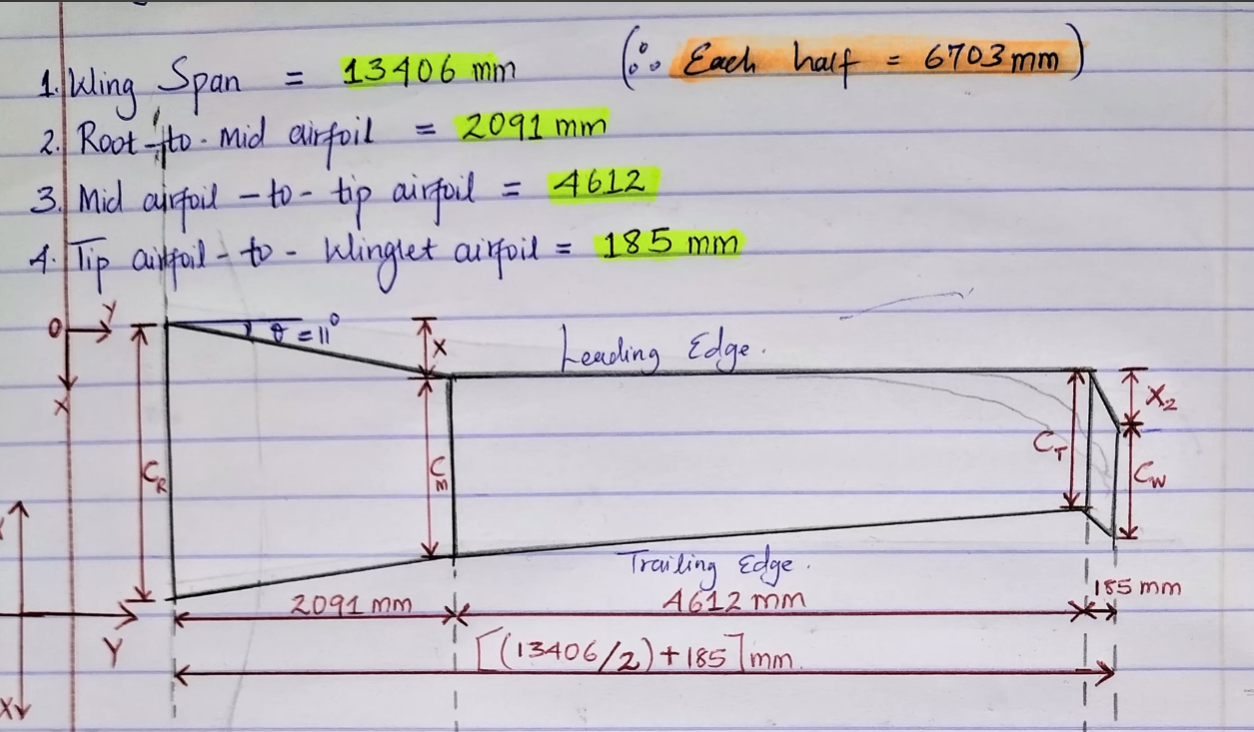 1. Wing Span = 13406 mm (∴ Each half = 6703 mm)
2. Root-to-Mid airfoil = 2091 mm
3. Mid airfoil -to- tip airfoil = 4612
4. Tip airfoil-to-Winglet airfoil = 185 mm
O Y
X
θ = 11°
X
Leading Edge.
X₂
C_R
C_M
C_T
C_W
Trailing Edge.
2091 mm
4612 mm
185 mm
Y
[(13406/2)+185]mm
X